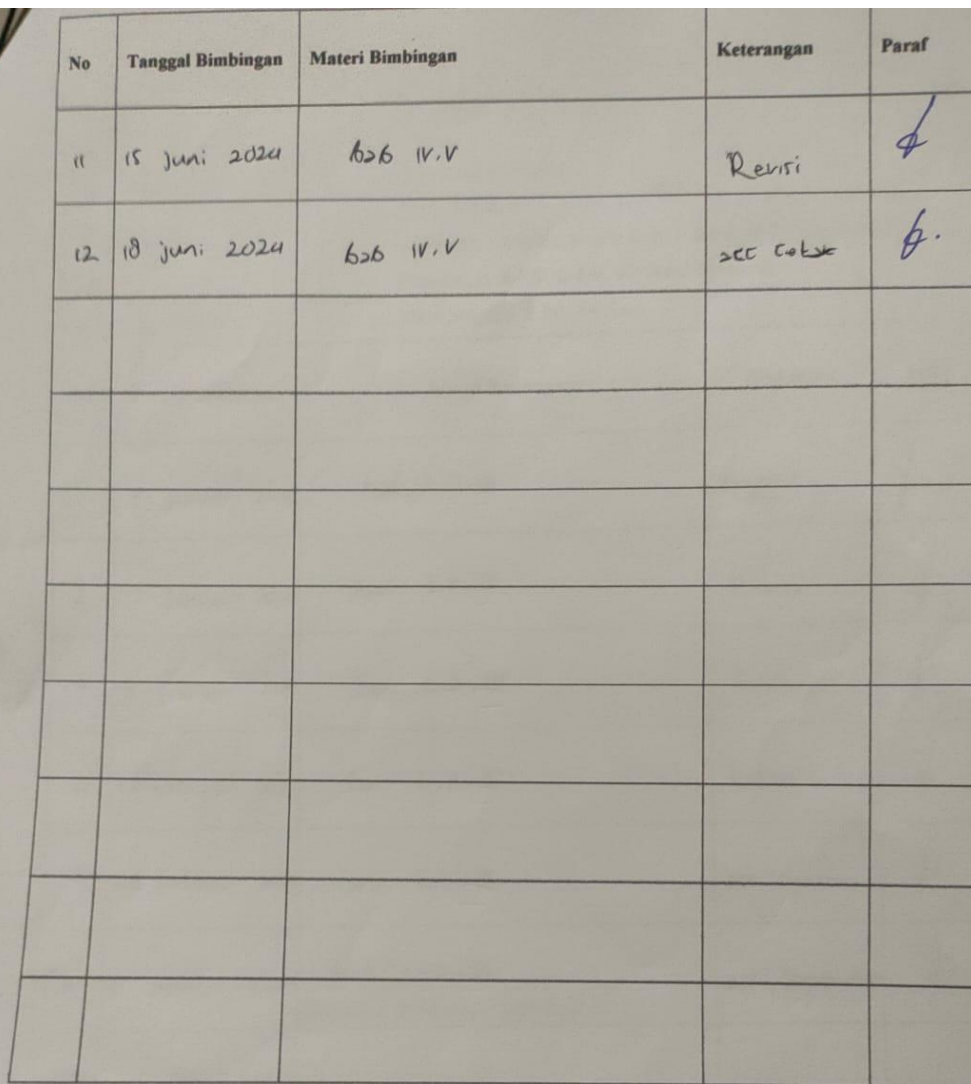 No Tanggal Bimbingan Materi Bimbingan Keterangan Paraf
11 15 juni 2024 bab IV.V Revisi
12 18 juni 2024 bab IV.V acc cetak